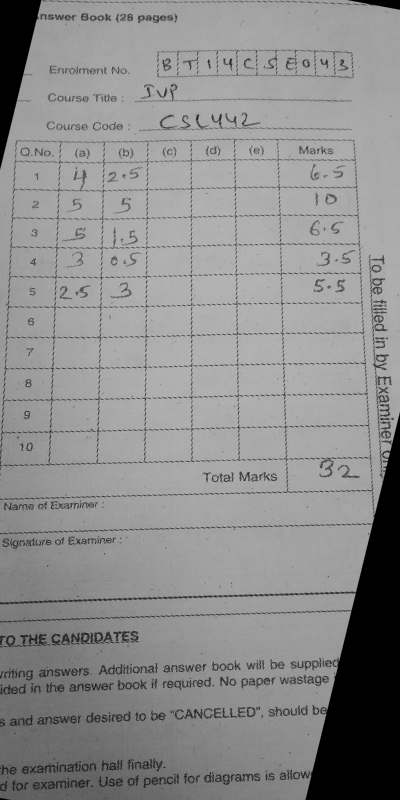 Answer Book (28 pages)
Enrolment No. BT14CSE043
Course Title : IVP
Course Code : CSL442
Q.No. (a) (b) (c) (d) (e) Marks
1 4 2.5 6.5
2 5 5 10
3 5 1.5 6.5
4 3 0.5 3.5
5 2.5 3 5.5
6
7
8
9
10
Total Marks 32
To be filled in by Examiner
Name of Examiner :
Signature of Examiner :
TO THE CANDIDATES
writing answers. Additional answer book will be supplied
ided in the answer book if required. No paper wastage
s and answer desired to be "CANCELLED", should be
the examination hall finally.
d for examiner. Use of pencil for diagrams is allow